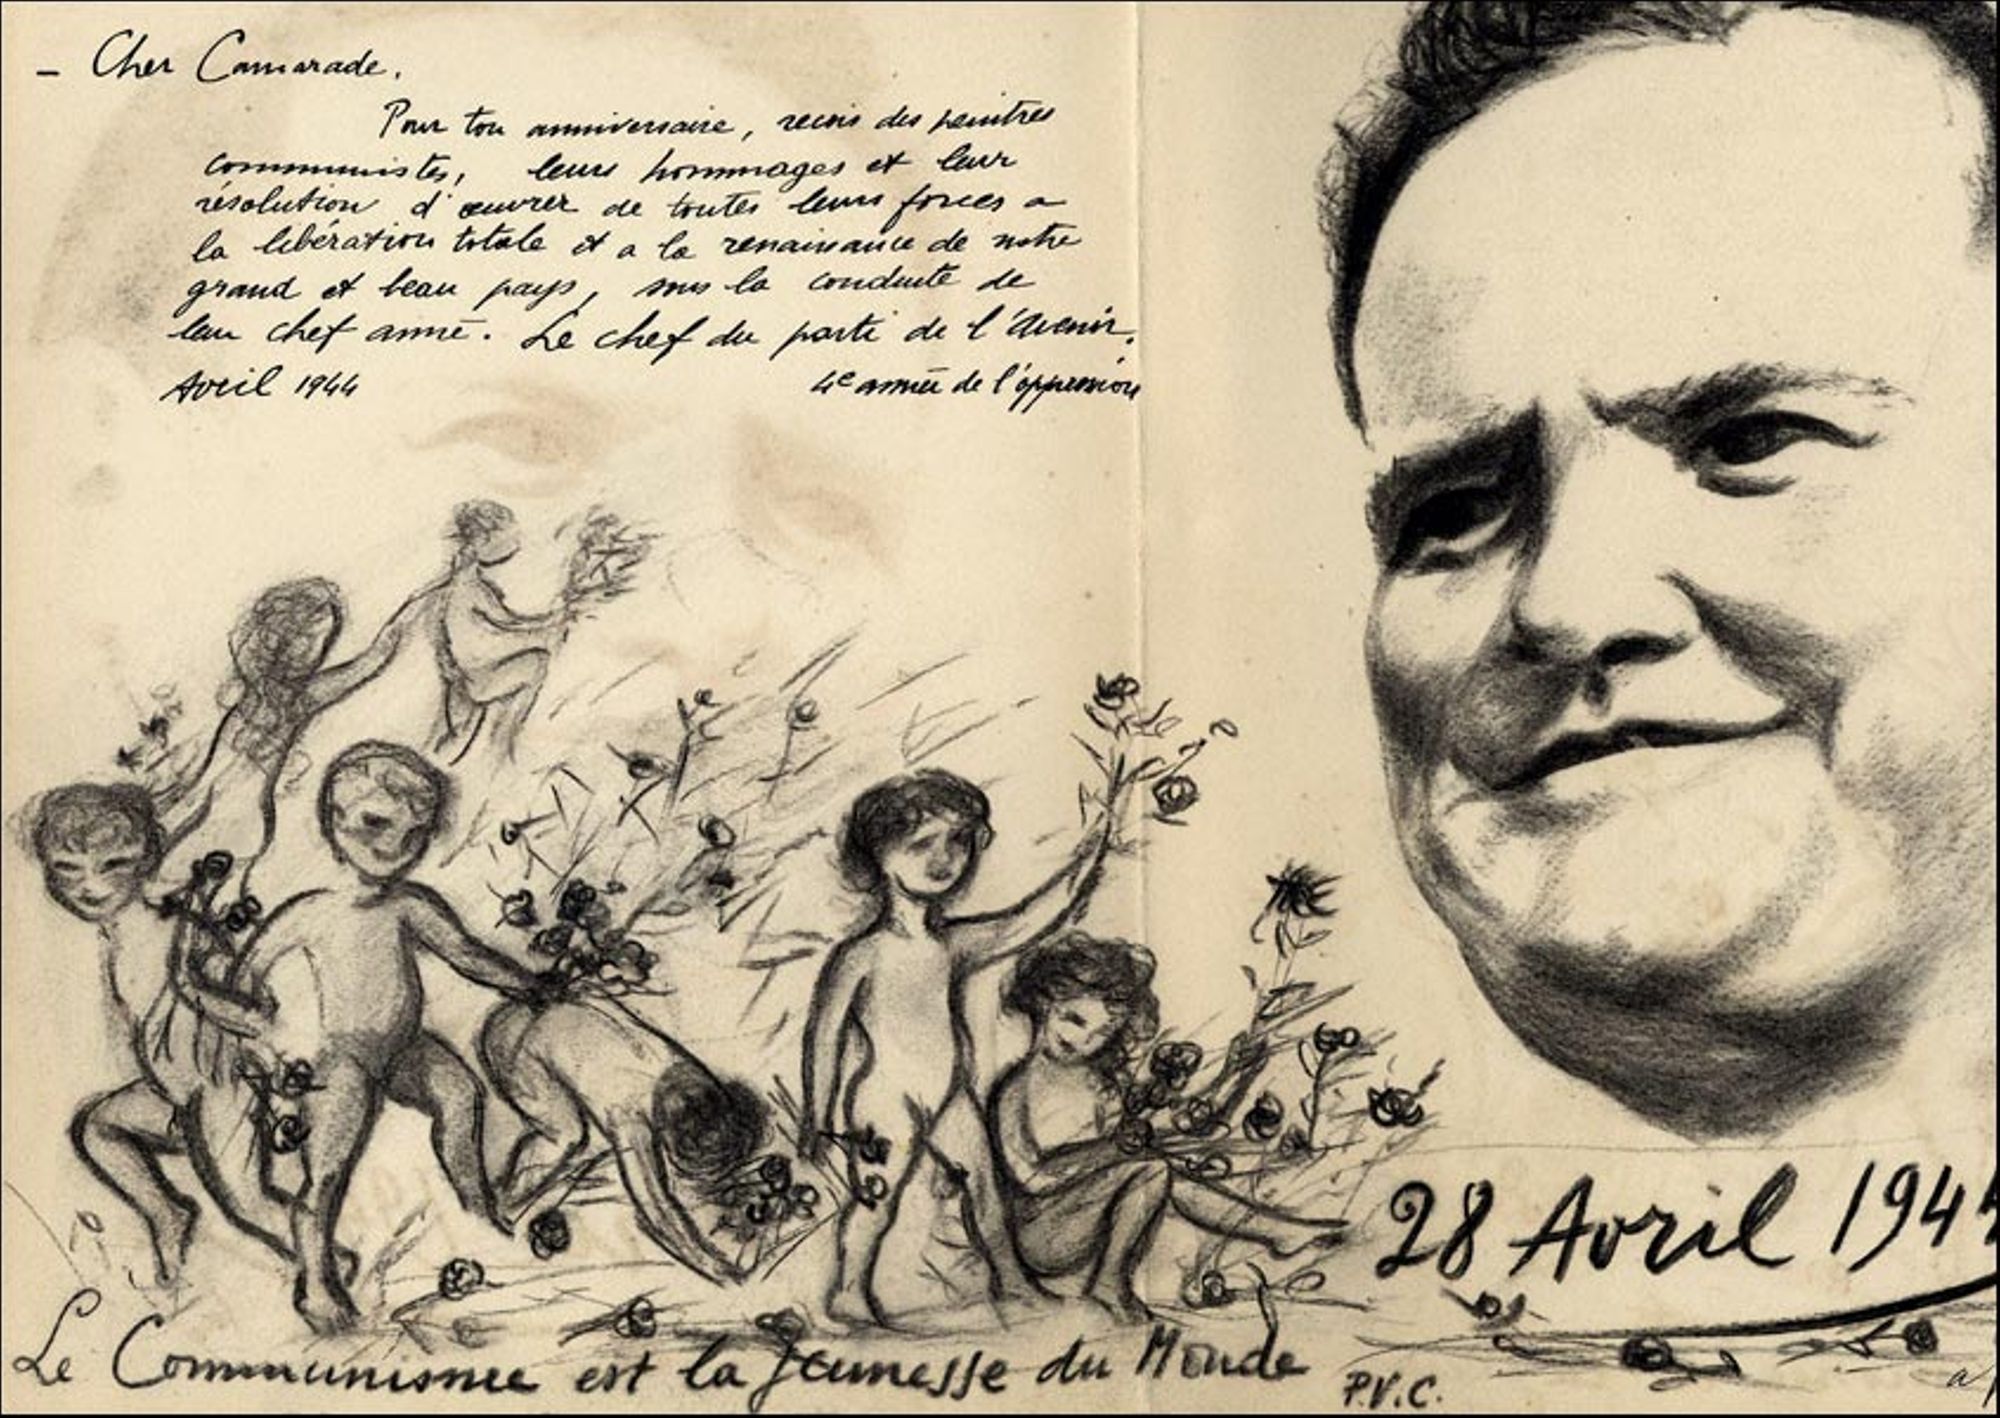 – Cher Camarade.
Pour ton anniversaire, reçois des peintres
communistes, leurs hommages et leur
résolution d'œuvrer de toutes leurs forces a
la libération totale et a la renaissance de notre
grand et beau pays, sous la conduite de
leur chef aimé. Le chef du parti de l'Avenir.
Avril 1944
4e année de l'oppression
28 Avril 1944
Le Communisme est la Jeunesse du Monde
P.V.C.